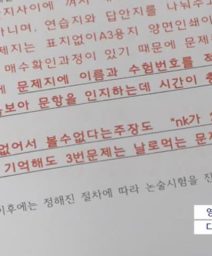 지사이에 껴서
아니며. 연습지와 답안지를 나눠주고
제지는 표지없이A3용지 양면인쇄
매수확인과정이 있기 때문에 문제
에 문제지에 이름과 수험번호를 적
보아 문항을 인지하는데 시간이 충
없어서 볼수없다는주장도 "nk가
기억해도 3번문제는 날로먹는 문
이후에는 정해진 절차에 따라 논술시험을 진